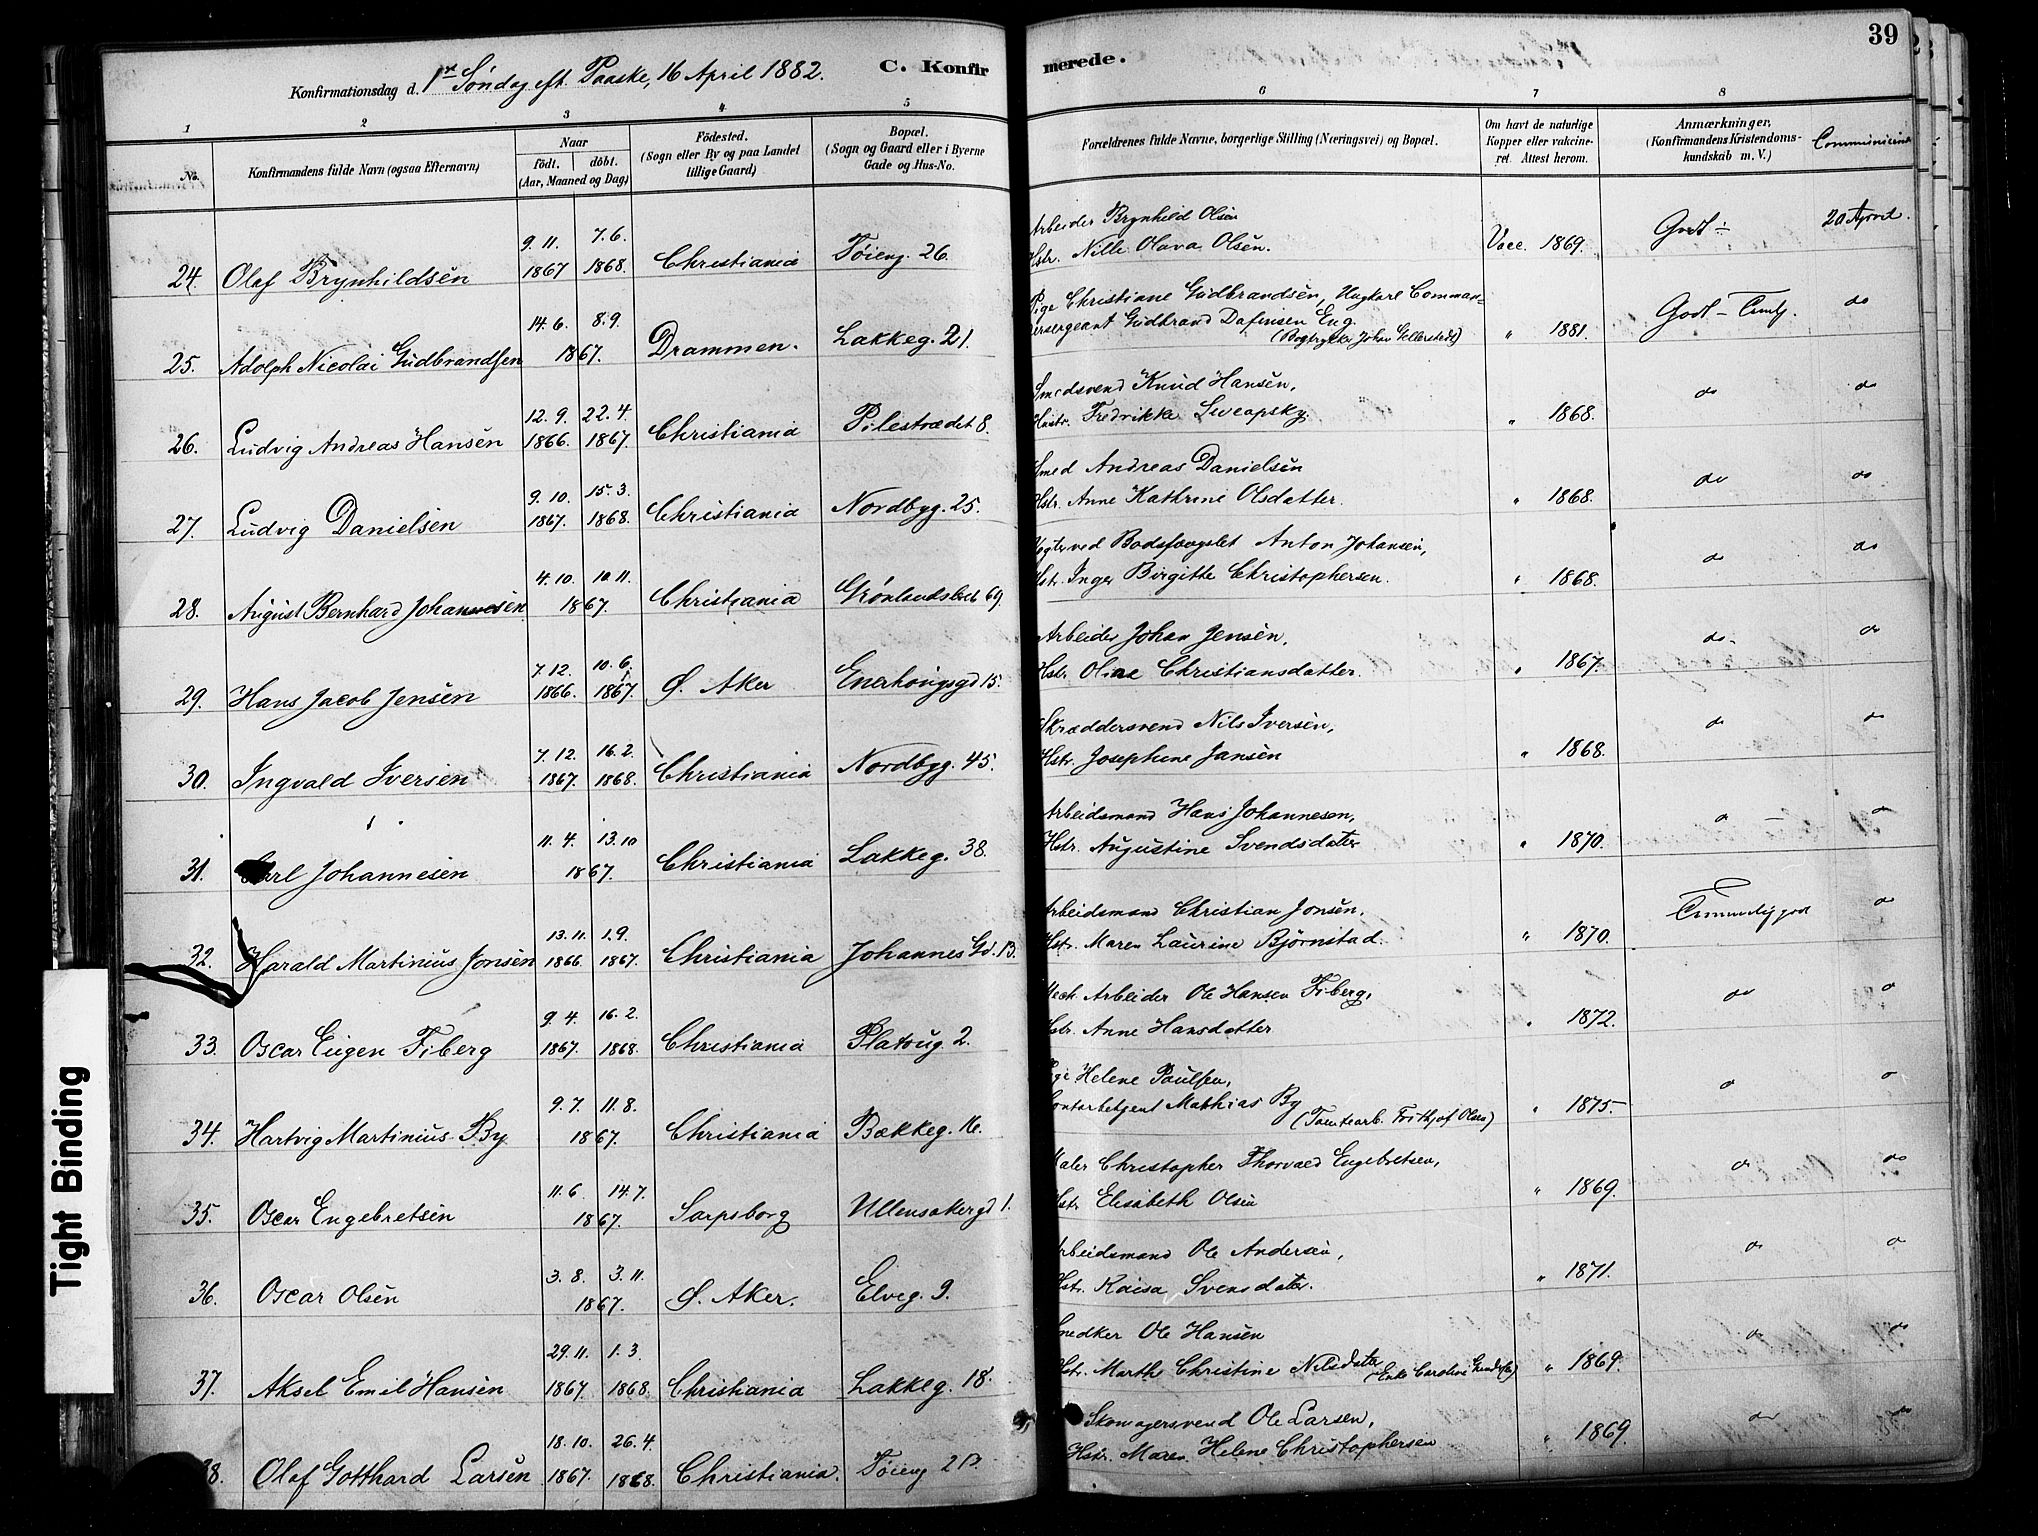 39
Konfirmationsdag d. 1ste Søndag eft. Paaske, 16 April 1882. C. Konfirmerede.
1 2 3 4 5 6 7 8
No. Konfirmandens fulde Navn (ogsaa Efternavn) Naar födt. döbt. (Aar, Maaned og Dag) Födested. (Sogn eller By og paa Landet tillige Gaard) Bopæl. (Sogn og Gaard eller i Byerne Gade og Hus-No. Forældrenes fulde Navne, borgerlige Stilling (Næringsvei) og Bopæl. Om havt de naturlige Kopper eller vaccineret. Attest herom. Anmærkninger, (Konfirmandens Kristendomskundskab m. V.)
24. Olaf Brynhildsen 9. 11. 1867 7. 6. 1868. Christiania Tøieng. 26. Arbeider Brynhild Olsen Hstr. Nille Olava Olsen. Vacc. 1869. Godt 20 April.
25. Adolph Nicolai Gudbrandsen 14. 6. 8. 9. 1867. Drammen. Lakkeg. 21. Pige Christiane Gudbrandsen, Ungkarl Commandersergeant Gudbrand Dafinsen Eng. (Bogtrykker Johan Gellerstedt) " 1881. Godt do
26. Ludvig Andreas Hansen 12. 9. 1866. 22. 4. 1867. Christiania Pilestrædet 8. Smedsvend Knud Hansen, Hustr. Fredrikke " 1868. do do
27. Ludvig Danielsen 9. 10. 1867. 15. 3. 1868. Christiania Nordbyg. 25. Smed Andreas Danielsen Hstr. Anne Kathrine Olsdatter. " 1868. do do
28. August Bernhard Johannesen 4. 10. 10. 11. 1867. Christiania Grønlandsleret 69. Vogter ved Bodsfængslet Anton Johansen, Hstr. Inger Birgitte Christophersen. " 1868. do do
29. Hans Jacob Jensen 7. 12. 1866. 10. 6. 1867. Ø. Aker Enerhougsgd 15. Arbeider Johan Jensen, Hstr. Oline Christiansdatter. " 1867. do do
30. Ingvald Iversen 7. 12. 1867. 16. 2. 1868. Christiania Nordbyg. 45. Skræddersvend Nils Iversen, Hstr. Josephine Jansen " 1868. do do
31. Carl Johannesen 11. 4. 13. 10 1867. Christiania Lakkeg. 38. Arbeidsmand Hans Johannesen, Hstr. Augustine Svendsdatter " 1870. do do
32. Harald Martinius Jonsen 13. 11. 1866. 1. 9. 1867. Christiania Johannes Gd. 13. Arbeidsmand Christian Jonsen, Hstr. Maren Laurine Bjørnstad. " 1870. Temmelig god do
33. Oscar Eugen Fiberg 9. 4. 1867. 16. 2. 1868. Christiania Platoug. 2. Mech. Arbeider Ole Hansen Fiberg, Hstr. Anne Hansdatter " 1872. do do
34. Hartvig Martinius By 9. 7. 11. 8. 1867. Christiania Bækkeg. 16. Pige Helene Paulsen, Contorbetjent Mathias By (Tomtearb. Frithjof Olsen) " 1875. do do
35. Oscar Engebretsen 11. 6. 14. 7. 1867. Sarpsborg Ullensakergd 1. Maler Christopher Thorvald Engebretsen, Hstr Elisabeth Olsen " 1869. do do
36. Oscar Olsen 3. 8. 3. 11. 1867. Ø. Aker. Elveg. 9. Arbeidsmand Ole Andersen, Hstr. Kaisa Svensdatter. " 1871. do do
37. Aksel Emil Hansen 29. 11. 1867. 1. 3. 1868. Christiania Lakkeg. 18. Snedker Ole Hansen Hstr. Marthe Christine Nilsdatter " 1869. do do
38. Olaf Gotthard Larsen 18. 10. 1867. 26. 4. 1868. Christiania. Tøieng Skomagersvend Ole Larsen, Hstr. Maren Helene Christophersen " 1869. do do
Tight Binding